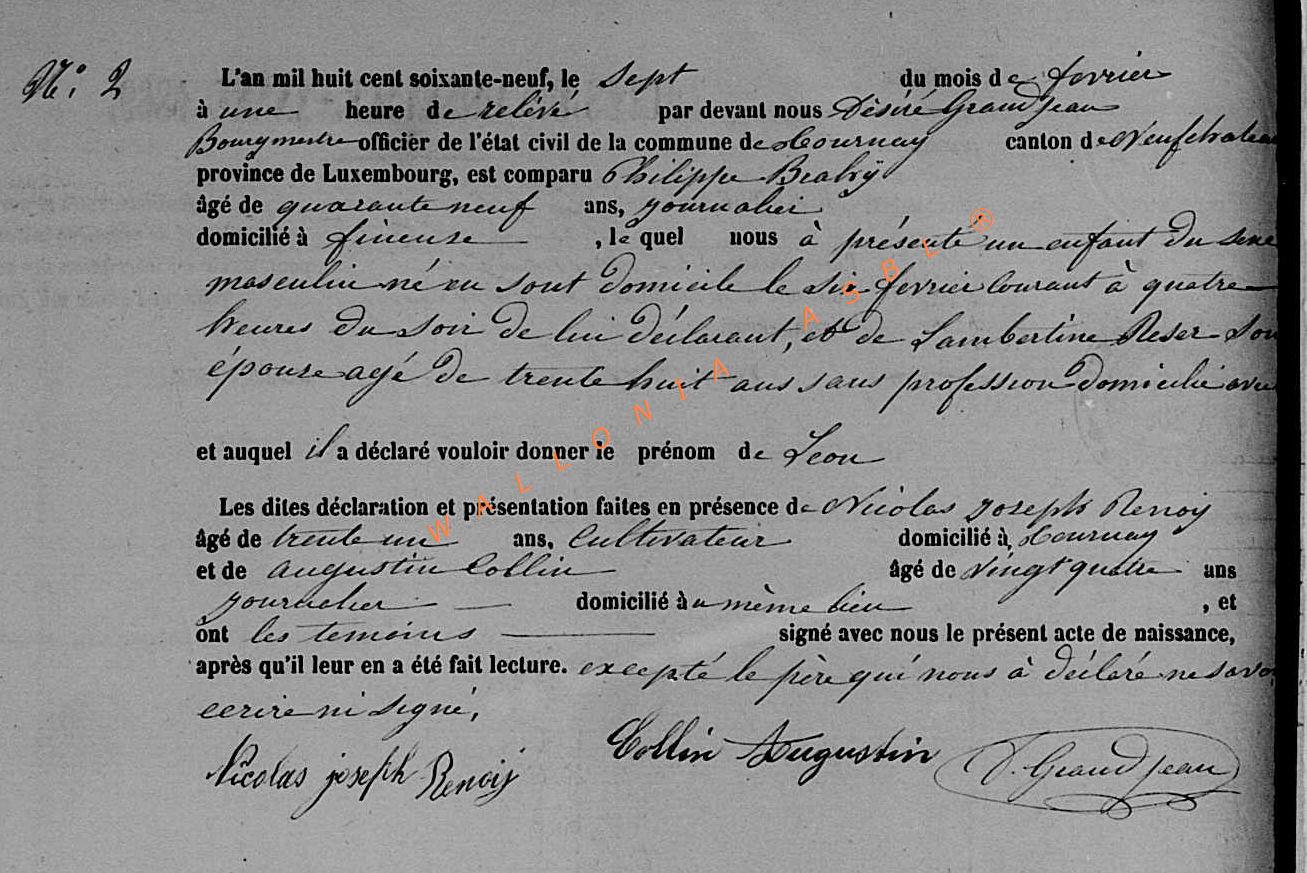 N° 2
L'an mil huit cent soixante-neuf, le sept du mois de fevrier
à une heure de relévé par devant nous Désiré Grandjean
Bourgmestre officier de l'état civil de la commune de Tournay canton de Neufchateau
province de Luxembourg, est comparu Philippe
âgé de quarante neuf ans, journalier
domicilié à fineuse, le quel nous à présenté un enfant du sexe
masculin né en sont domicile le six fevrier courant à quatre
heures du soir de lui déclarant, et de Lambertine Reser son
épouse agé de trente huit ans sans profession domicilié avec
et auquel il a déclaré vouloir donner le prénom de Leon
Les dites déclaration et présentation faites en présence de Nicolas joseph Renoy
âgé de trente un ans, Cultivateur domicilié à Tournay
et de augustin Collin âgé de vingt quatre ans
journalier domicilié à u même lieu, et
ont les temoins signé avec nous le présent acte de naissance,
après qu'il leur en a été fait lecture. excepté le père qui nous à déclaré ne savoir
ecrire ni signé,
Nicolas joseph Renoy Collin Augustin D. Grandjean
WALLONIA ASBL ®